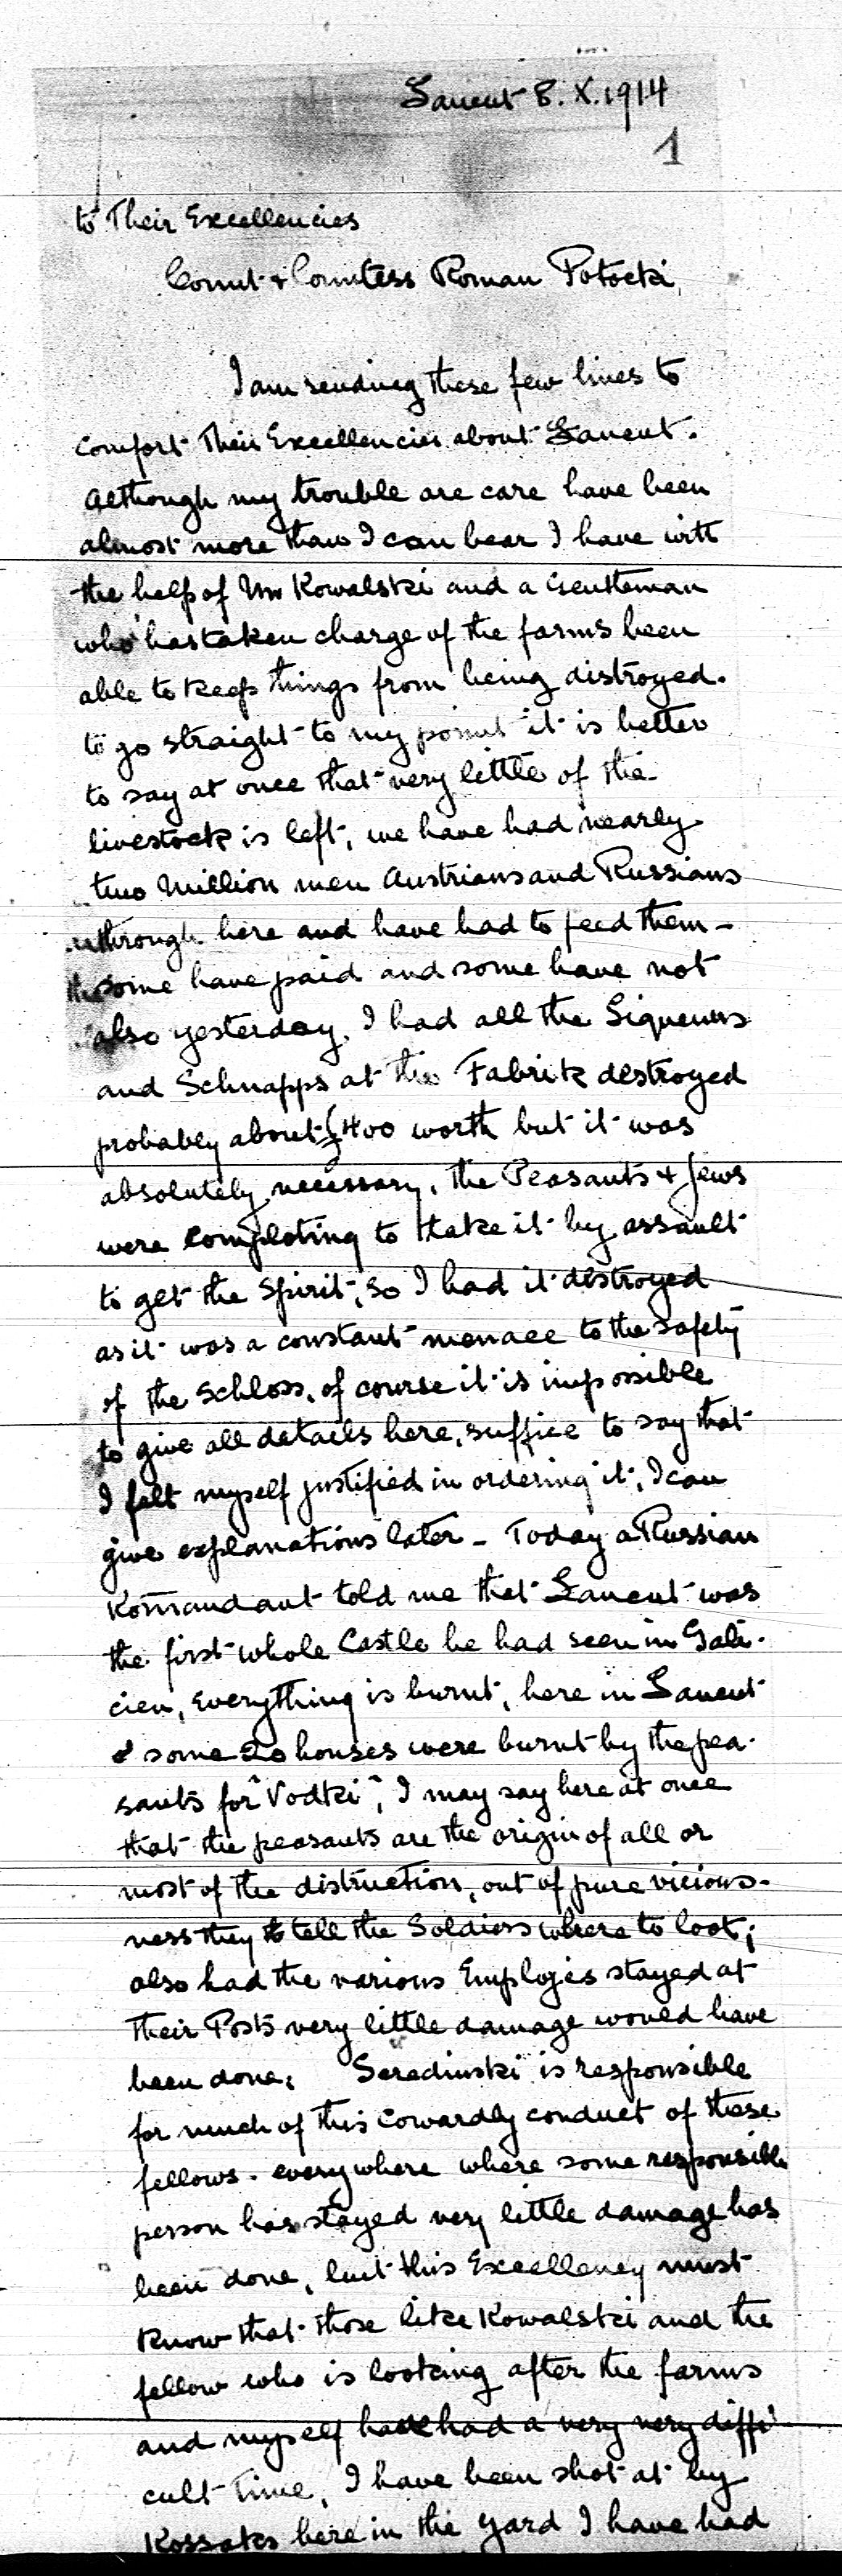 Lancut 8.X.1914
1
to Their Excellencies
Count & Countess Roman Potocki,
I am sending these few lines to
comfort Their Excellencies about Lancut.
Although my trouble are care have been
almost more than I can bear I have with
the help of Mr Kowalski and a Gentleman
who has taken charge of the farms been
able to keep things from being distroyed.
to go straight to my point it is better
to say at once that very little of the
livestock is left, we have had nearly
two Million men Austrians and Russians
through here and have had to feed them -
some have paid and some have not
also yesterday, I had all the Liqueurs
and Schnapps at the Fabrik destroyed
probably about £400 worth but it was
absolutely necessary, the Peasants & Jews
were comploting to take it by assault
to get the Spirit, so I had it destroyed
as it was a constant menace to the safety
of the Schloss, of course it is impossible
to give all details here, suffice to say that
I felt myself justified in ordering it, I can
give explanations later - Today a Russian
Kommandant told me that Lancut was
the first whole Castle he had seen in Gali-
cien, everything is burnt, here in Lancut
some 20 houses were burnt by the pea-
sants for "Vodki", I may say here at once
that the peasants are the origin of all or
most of the distruction, out of pure vicious-
ness they tell the Soldiers where to loot;
also had the various Employés stayed at
their Posts very little damage would have
been done, Seredinski is responsible
for much of this cowardly conduct of these
fellows. everywhere where some responsible
person has stayed very little damage has
been done, but this Excellency must
know that those like Kowalski and the
fellow who is looking after the farms
and myself have had a very very diffi-
cult Time, I have been shot at by
Kossaks here in the yard I have had